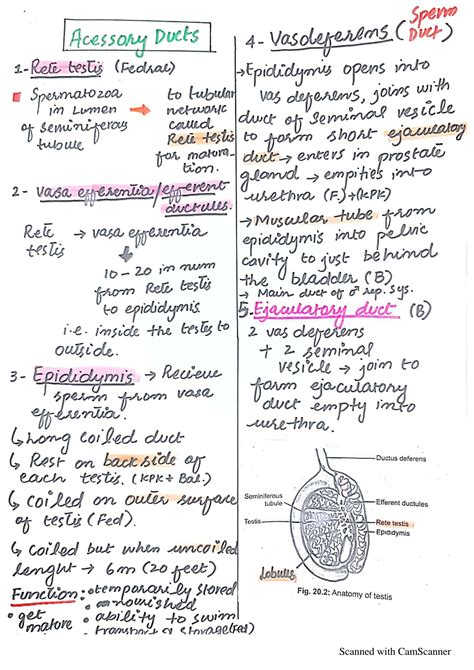 Acessory Ducts
1- Rete testis (Fedral)
Spermatozoa
in Lumen
of seminiferous
tubule
to tubular
network
called
Rete testis
for matura-
tion.
2- vasa efferentia/efferent
ductules.
Rete → vasa efferentia
testis
↓
10-20 in num
from Rete testis
to epididymis
i.e. inside the testis to
outside.
3- Epididymis → Recieve
sperm from vasa
efferentia.
↳ Long coiled duct
↳ Rest on backside of
each testis. (KPK + Bal.)
↳ coiled on outer surface
of testis (Fed).
↳ coiled but when uncoiled
lenght → 6m (20 feet)
Function: • temporarily stored
• nourished
• get
mature
• ability to swim
• transport & storage (Fed)
4- Vasdeferens (Sperm
Duct)
→ Epididymis opens into
vas deferens, joins with
duct of seminal vesicle
to form short ejaculatory
duct → enters in prostate
gland → empities into
urethra (F.)+(KPK)
→ Muscular tube from
epididymis into pelvic
cavity to just behind
the bladder (B)
→ Main duct of ♂ rep. sys.
5. Ejaculatory duct (B)
2 vas deferens
+ 2 seminal
vesicle → join to
form ejaculatory
duct empty into
urethra.
Ductus deferens
Seminiferous
tubule
Testis
Efferent ductules
Rete testis
Epididymis
Lobules
Fig. 20.2: Anatomy of testis
Scanned with CamScanner